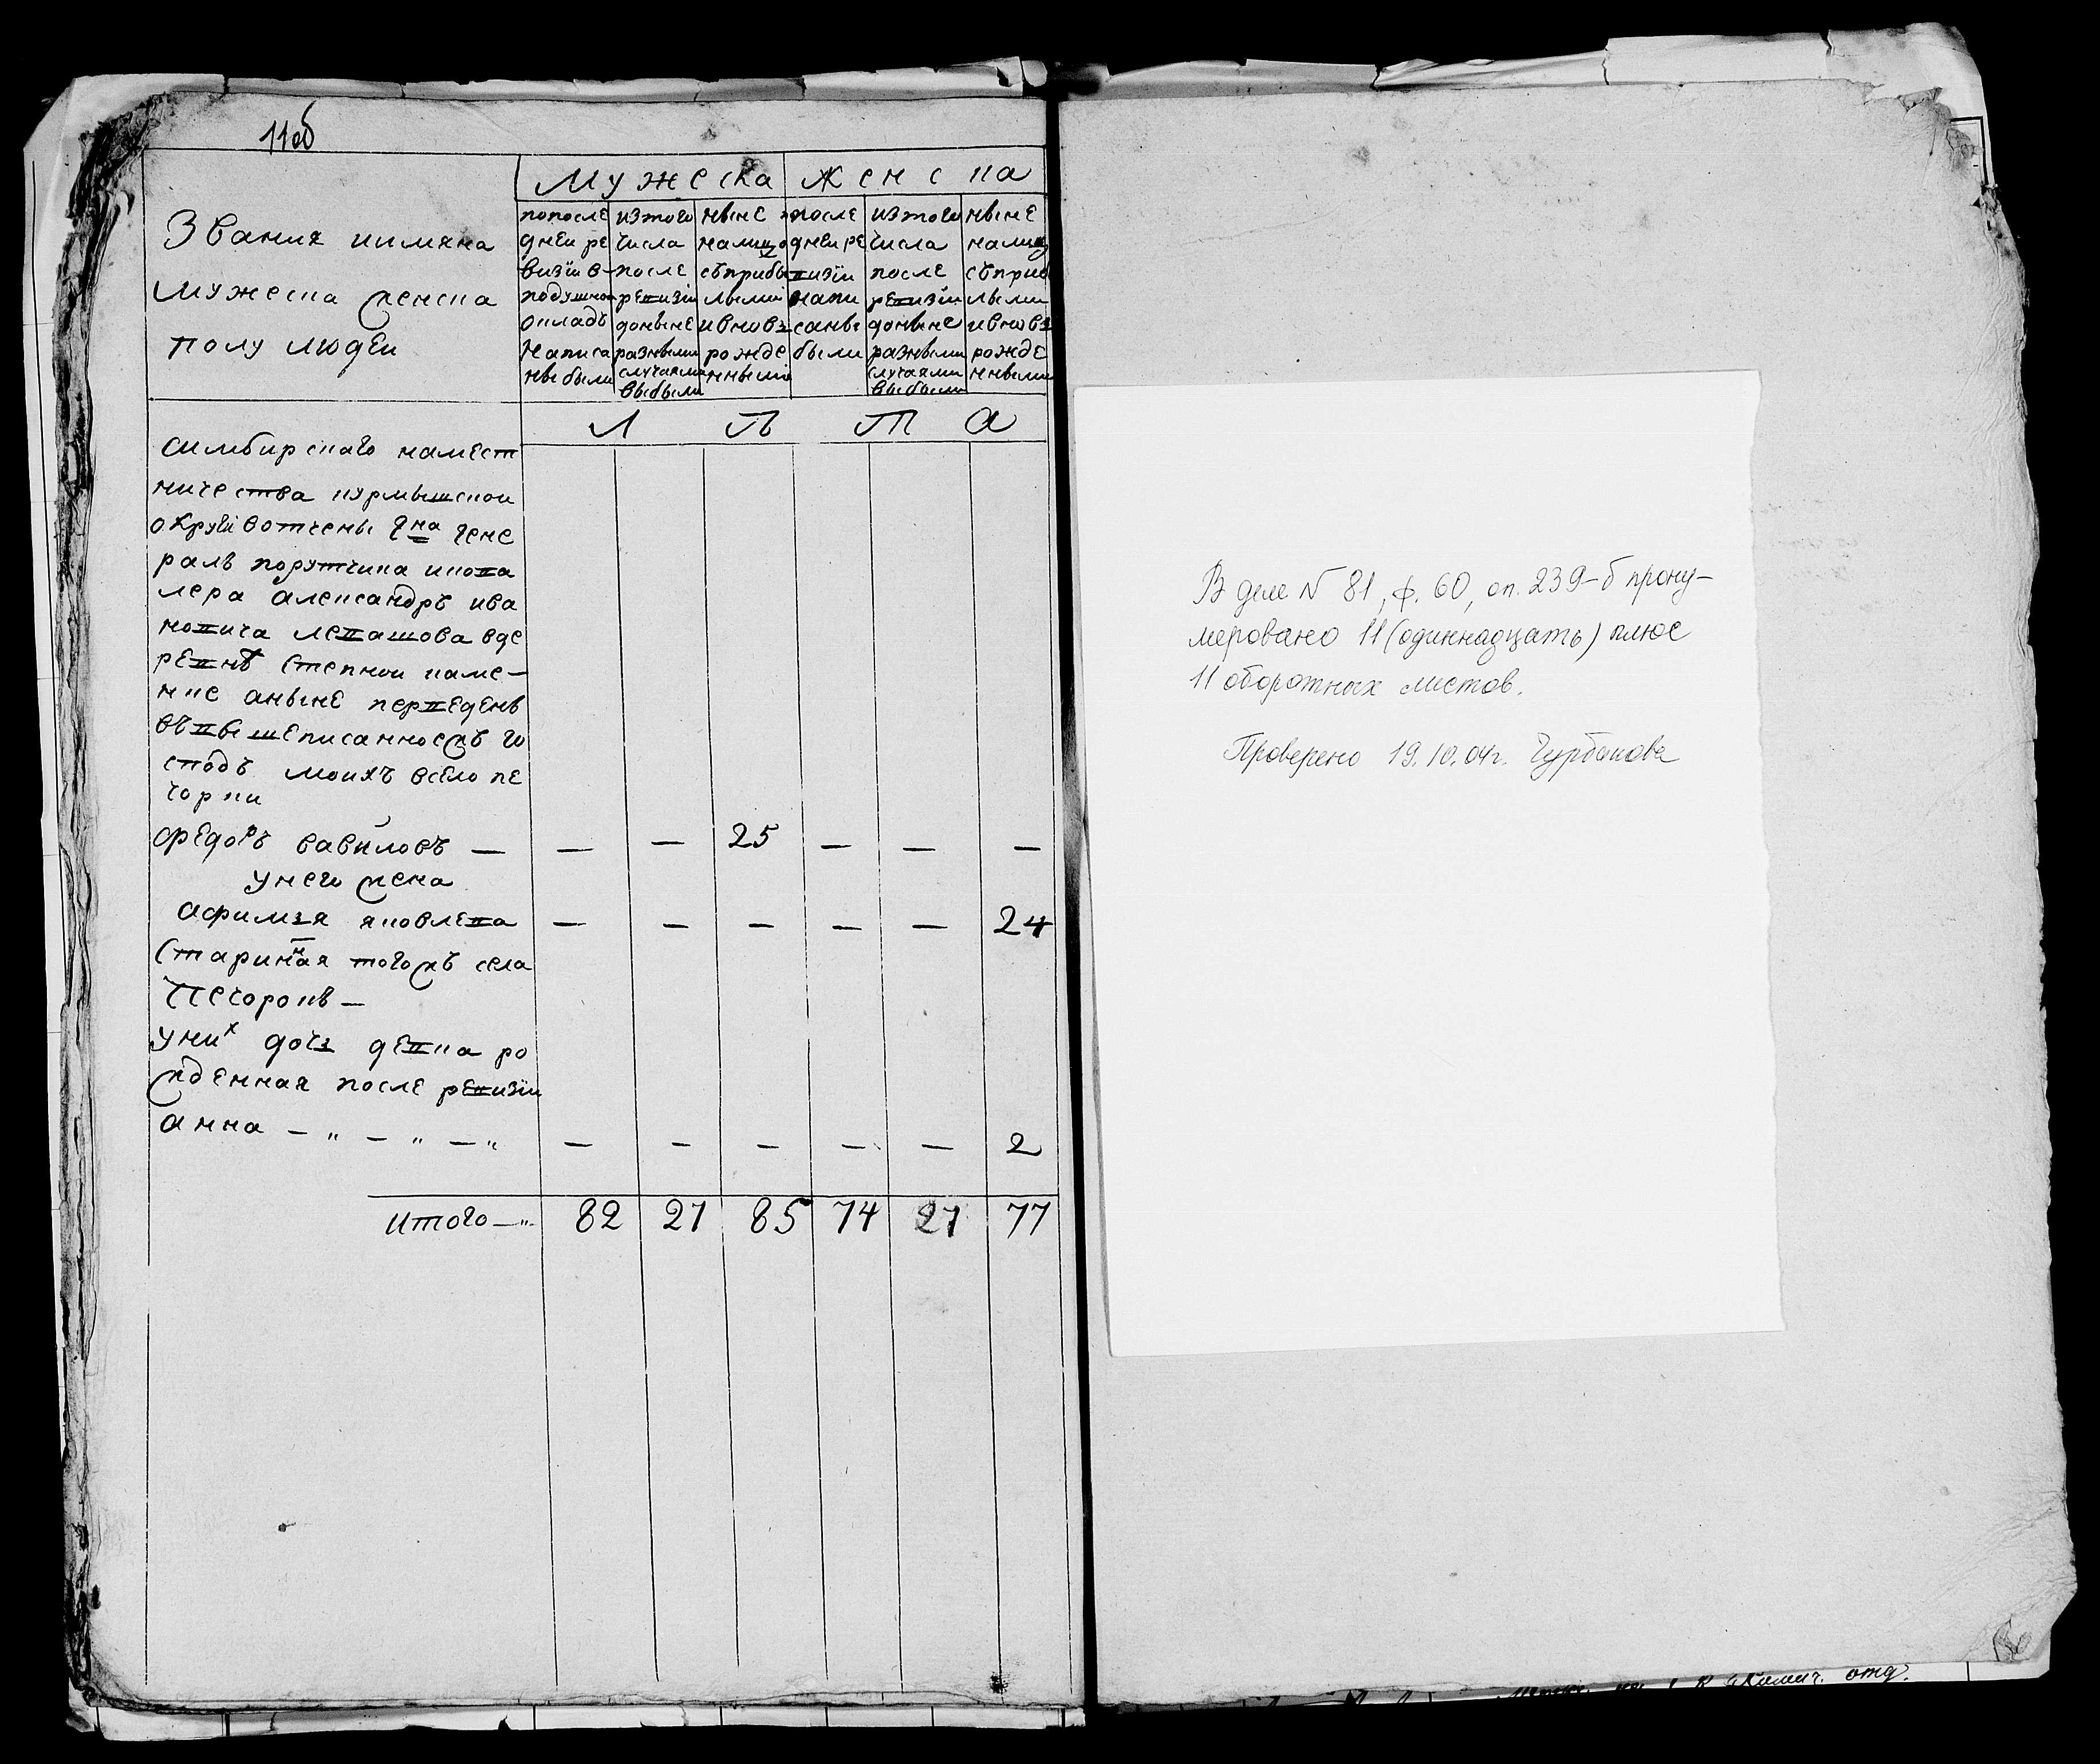 11об
Звания иимяна
мужеска женска
полу людеи
Мужеска женска
попосле
днеи ре
визїи в
подушнои
окладъ
написа
ны были
изтого
числа
после
ревизїи
доныне
разными
случаями
выбыли
ныне
налицо
съприбы
лыми
ивновь
рожде
нными
после
днеи ре
визїи
напи
саны
были
изтого
числа
после
ревизїи
доныне
разными
случаями
выбыли
ныне
налицо
съприб
лыми
ивновь
рожде
нными
Л ѣ т а
симбирскаго намест
ничества курмышскои
округи вотчены гна гене
ралъ порутчика икова
лера александръ ива
новича левашова вде
ревнѣ степнои каме-
нке аныне переведенъ
въвышеписанноежъ го
сподъ моихъ всело пе
чорки
федоръ вавиловъ — — — 25 — — —
унего жена
афимья яковлева — — — — — 24
старинная тогожъ села
Печорокъ —
уних дочь девка ро
жденная после ревизїи
анна — „ — „ — „ — — — — — 2
итого — „ 82 27 85 74 27 77
В деле № 81, ф. 60, оп. 239-б прону-
меровано 11 (одиннадцать) плюс
11 оборотных листов.
Проверено 19.10.04г. Чурбанова
отд.